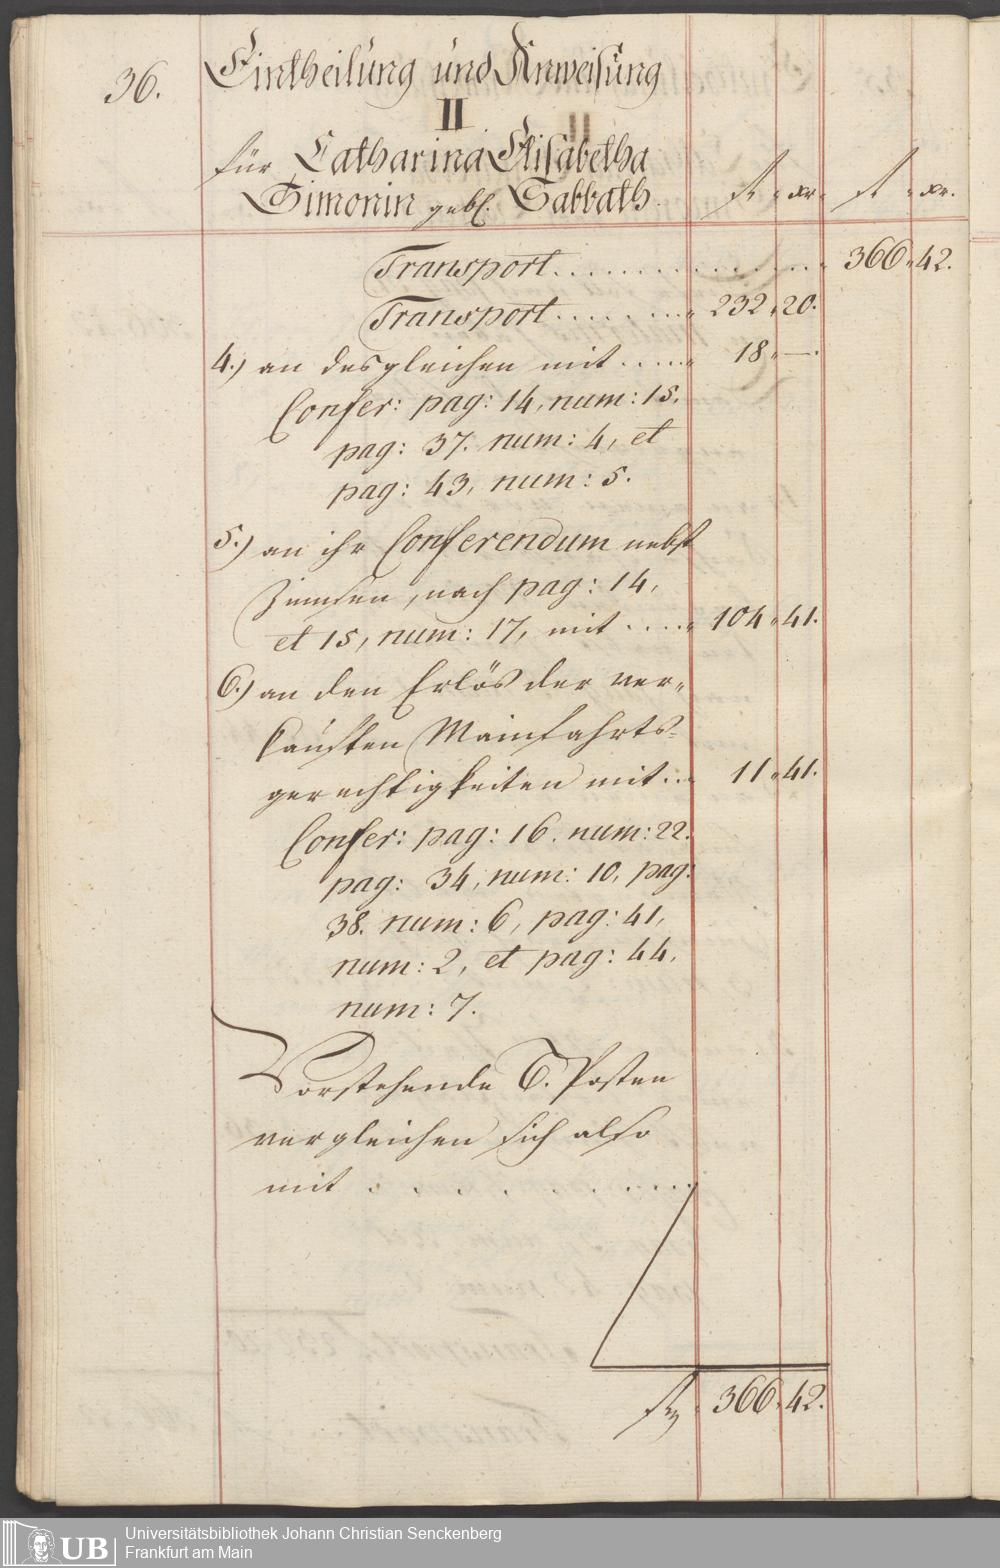 36.
Eintheilung und Anweisung
II
für Catharina Elisabetha
Simonin gebl. Sabbath.
fl. xr. fl. xr.
Transport . . . . . . . . . . 366 " 42.
Transport . . . . . . . . 232 " 20.
4.) an desgleichen mit . . . . . 18 " —.
Confer: pag: 14, num: 15.
pag: 37. num: 4, et
pag: 43, num: 5.
5.) an ihr Conferendum nebst
Zinnsen, nach pag: 14,
et 15, num: 17, mit . . . . 104 " 41.
6.) an den Erlös der ver„
kauften Mainfahrts-
gerechtigkeiten mit . . 11 " 41.
Confer: pag: 16. num: 22.
pag: 34, num: 10, pag:
38. num: 6, pag: 41,
num: 2, et pag: 44,
num: 7.
Vorstehende 6. Posten
vergleichen sich also
mit . . . . . . . . . . .
fl. 366 " 42.
UB
Universitätsbibliothek Johann Christian Senckenberg
Frankfurt am Main